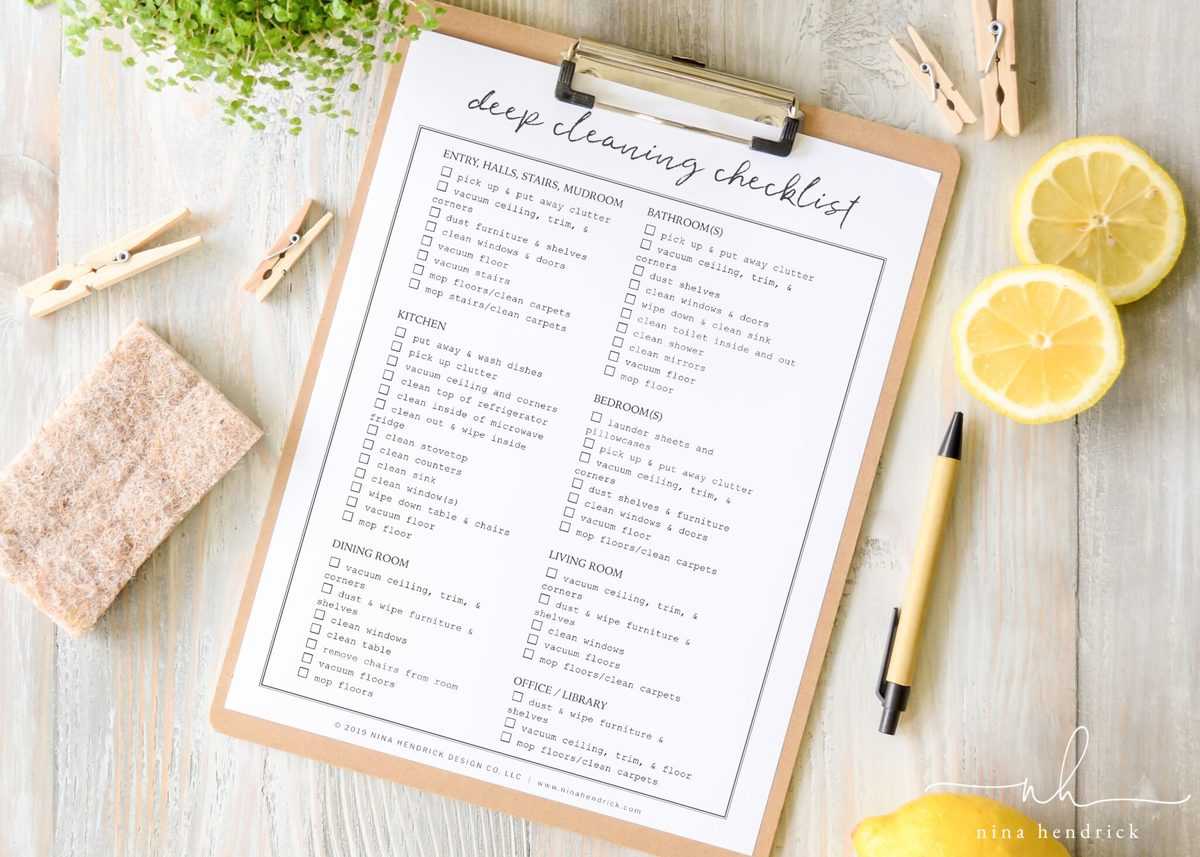 deep cleaning checklist
ENTRY, HALLS, STAIRS, MUDROOM
pick up & put away clutter
vacuum ceiling, trim, &
corners
dust furniture & shelves
clean windows & doors
vacuum floor
vacuum stairs
mop floors/clean carpets
mop stairs/clean carpets
KITCHEN
put away & wash dishes
pick up clutter
vacuum ceiling and corners
clean top of refrigerator
clean inside of microwave
clean out & wipe inside
fridge
clean stovetop
clean counters
clean sink
clean window(s)
wipe down table & chairs
vacuum floor
mop floor
DINING ROOM
vacuum ceiling, trim, &
corners
dust & wipe furniture &
shelves
clean windows
clean table
remove chairs from room
vacuum floors
mop floors
BATHROOM(S)
pick up & put away clutter
vacuum ceiling, trim, &
corners
dust shelves
clean windows & doors
wipe down & clean sink
clean toilet inside and out
clean shower
clean mirrors
vacuum floor
mop floor
BEDROOM(S)
launder sheets and
pillowcases
pick up & put away clutter
vacuum ceiling, trim, &
corners
dust shelves & furniture
clean windows & doors
vacuum floor
mop floors/clean carpets
LIVING ROOM
vacuum ceiling, trim, &
corners
dust & wipe furniture &
shelves
clean windows
vacuum floors
mop floors/clean carpets
OFFICE / LIBRARY
dust & wipe furniture &
shelves
vacuum ceiling, trim, & floor
mop floors/clean carpets
© 2019 NINA HENDRICK DESIGN CO, LLC | www.ninahendrick.com
nh
nina hendrick